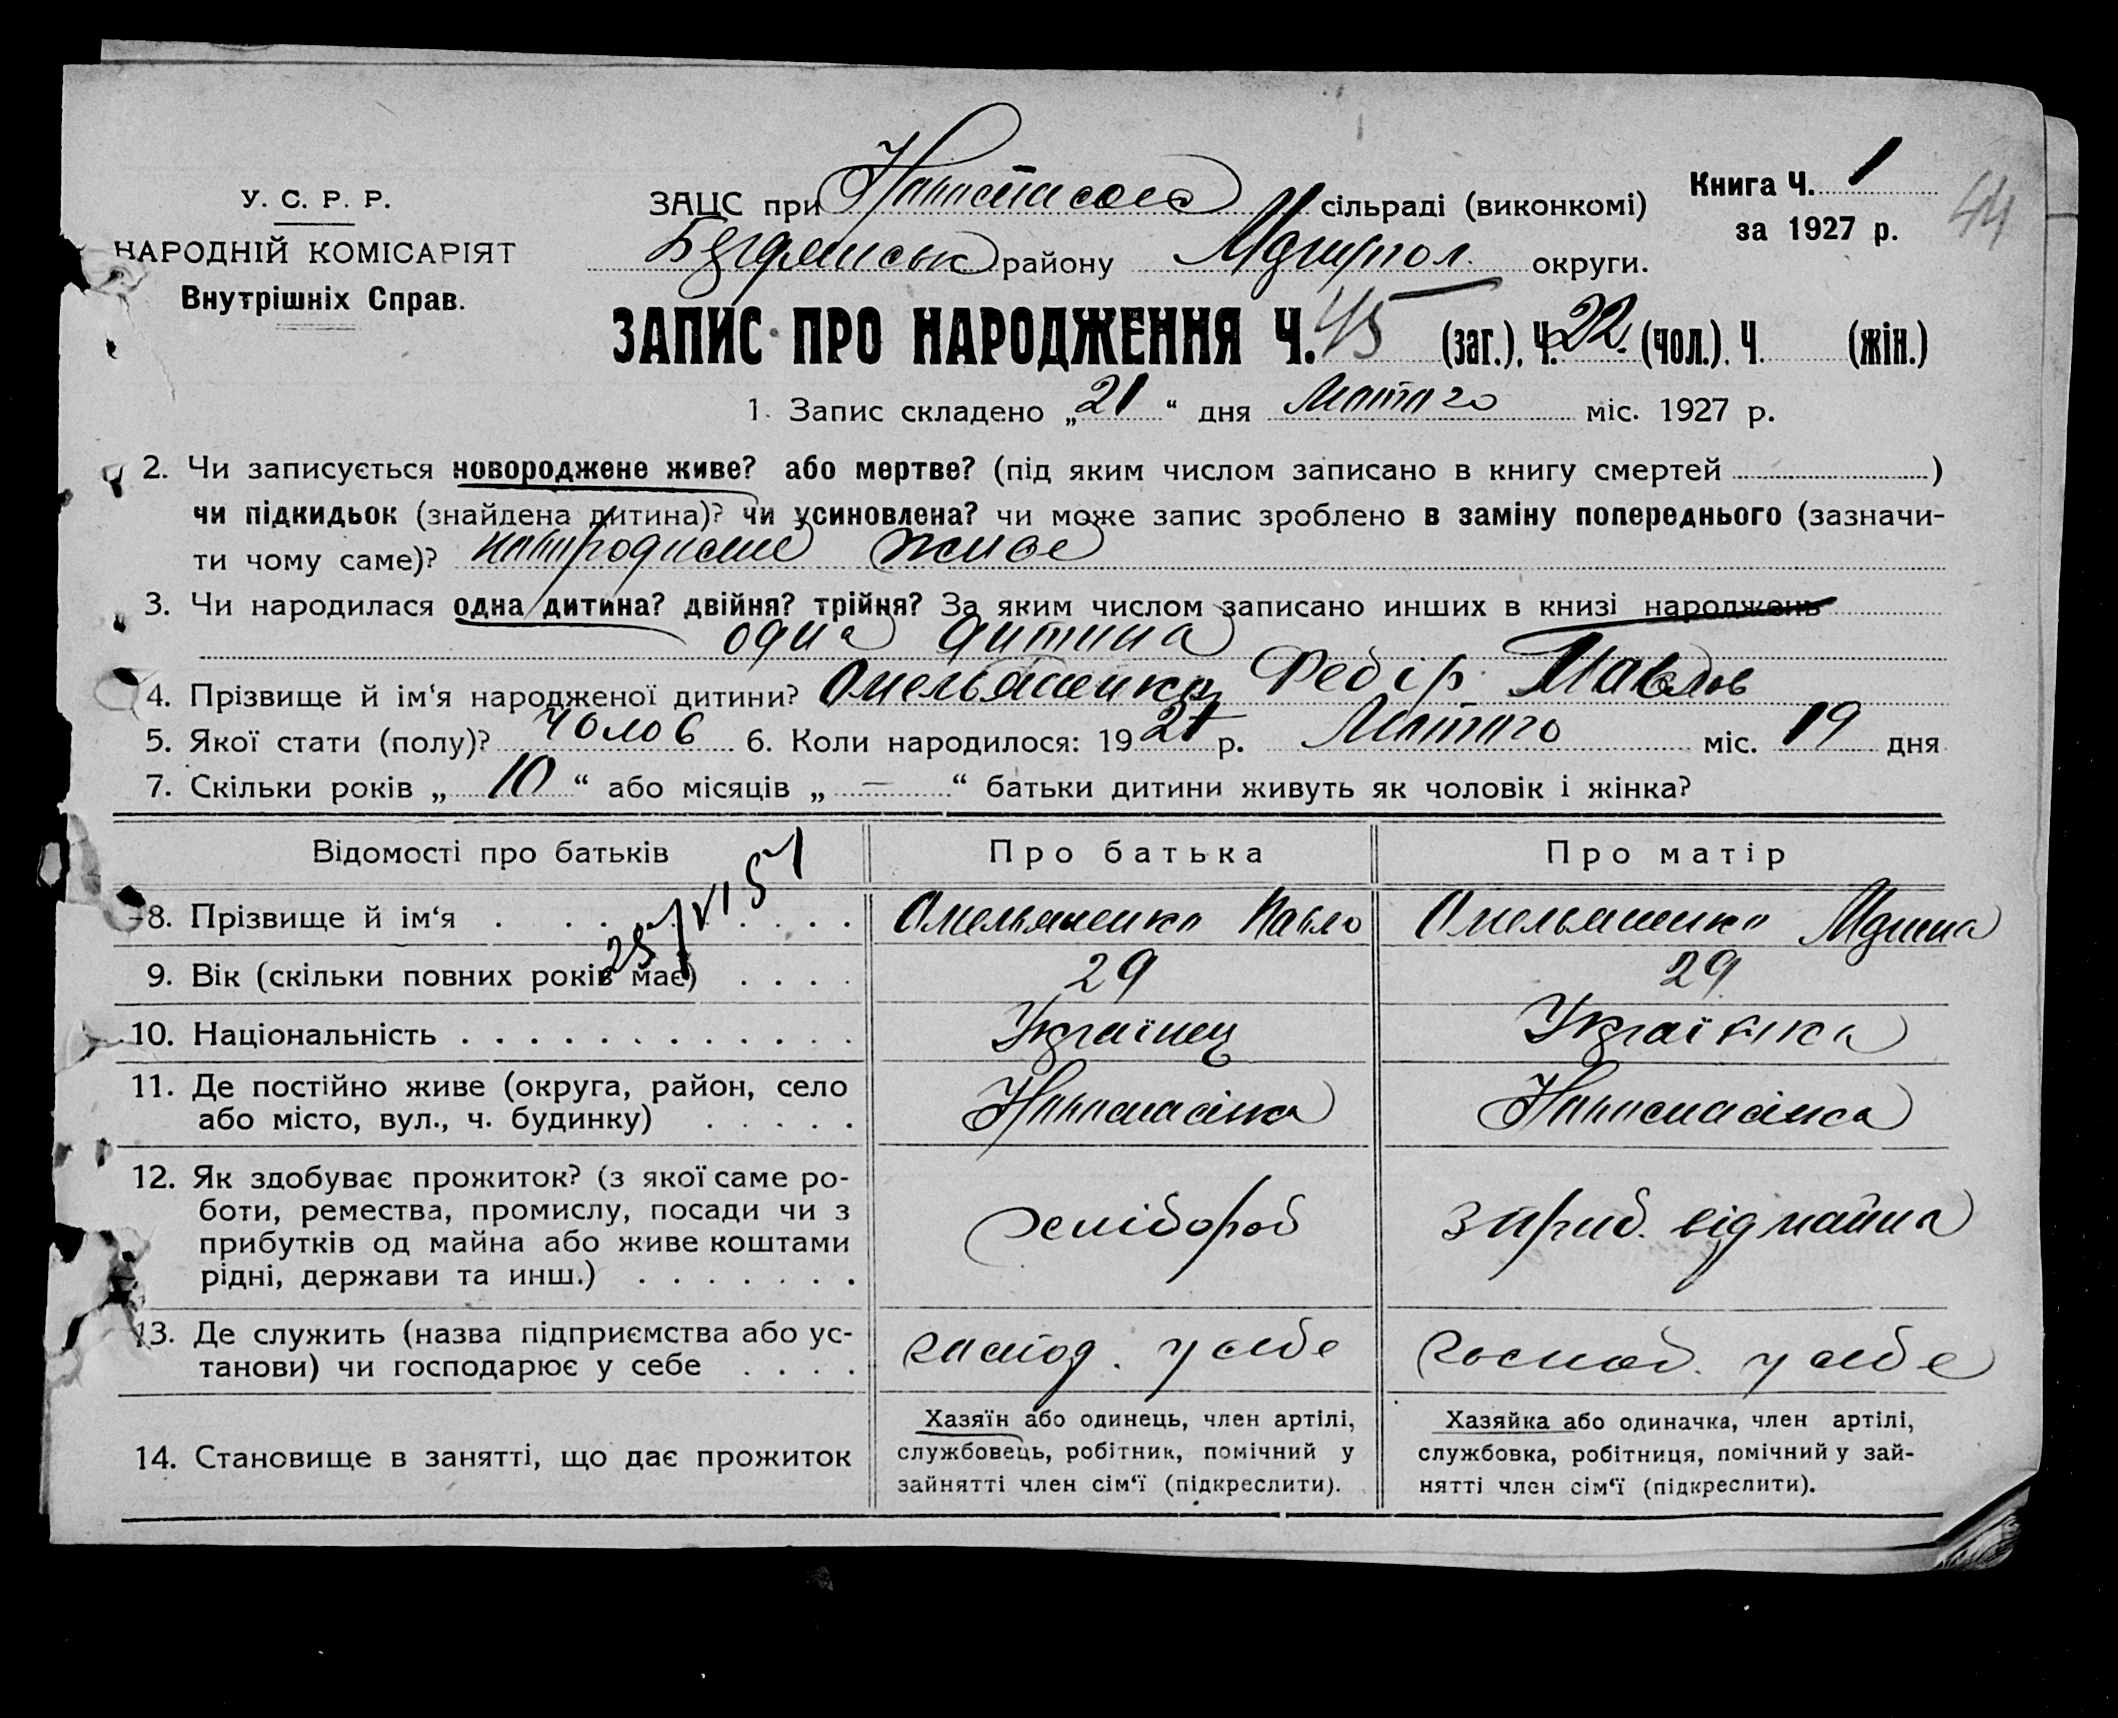 У. С. Р. Р.
НАРОДНІЙ КОМІСАРІЯТ
Внутрішніх Справ.
ЗАЦС при сільраді (виконкомі)
району Маріупол. округи.
Книга Ч. 1
за 1927 р.
44
ЗАПИС ПРО НАРОДЖЕННЯ Ч. 45 (заг.), Ч. 22. (чол.). Ч. (жін.)
1. Запис складено „ 21 “ дня Лютаго міс. 1927 р.
2. Чи записується новороджене живе? або мертве? (під яким числом записано в книгу смертей )
чи підкидьок (знайдена дитина)? чи усиновлена? чи може запис зроблено в заміну попереднього (зазначи-
ти чому саме)? живе
3. Чи народилася одна дитина? двійня? трійня? За яким числом записано инших в книзі народжень
одна дитина
4. Прізвище й ім‘я народженої дитини? Омельяненко Федір Павлов
5. Якої стати (полу)? Чолов 6. Коли народилося: 19 27 р. Лютаго міс. 19 дня
7. Скільки років „ 10 “ або місяців „ — “ батьки дитини живуть як чоловік і жінка?
Відомості про батьків Про батька Про матір
25/VI 51
8. Прізвище й ім‘я Омельяненко Павло Омельяненко
9. Вік (скільки повних років має) 29 29
10. Національність Українец Українка
11. Де постійно живе (округа, район, село
або місто, вул., ч. будинку)
12. Як здобуває прожиток? (з якої саме ро-
боти, ремества, промислу, посади чи з
прибутків од майна або живе коштами
рідні, держави та инш.) хлібороб від майна
13. Де служить (назва підприємства або ус-
танови) чи господарює у себе господ. у себе господ. у себе
14. Становище в занятті, що дає прожиток
Хазяїн або одинець, член артілі,
службовець, робітник, помічний у
зайнятті член сім‘ї (підкреслити).
Хазяйка або одиначка, член артілі,
службовка, робітниця, помічний у зай-
нятті член сім‘ї (підкреслити).